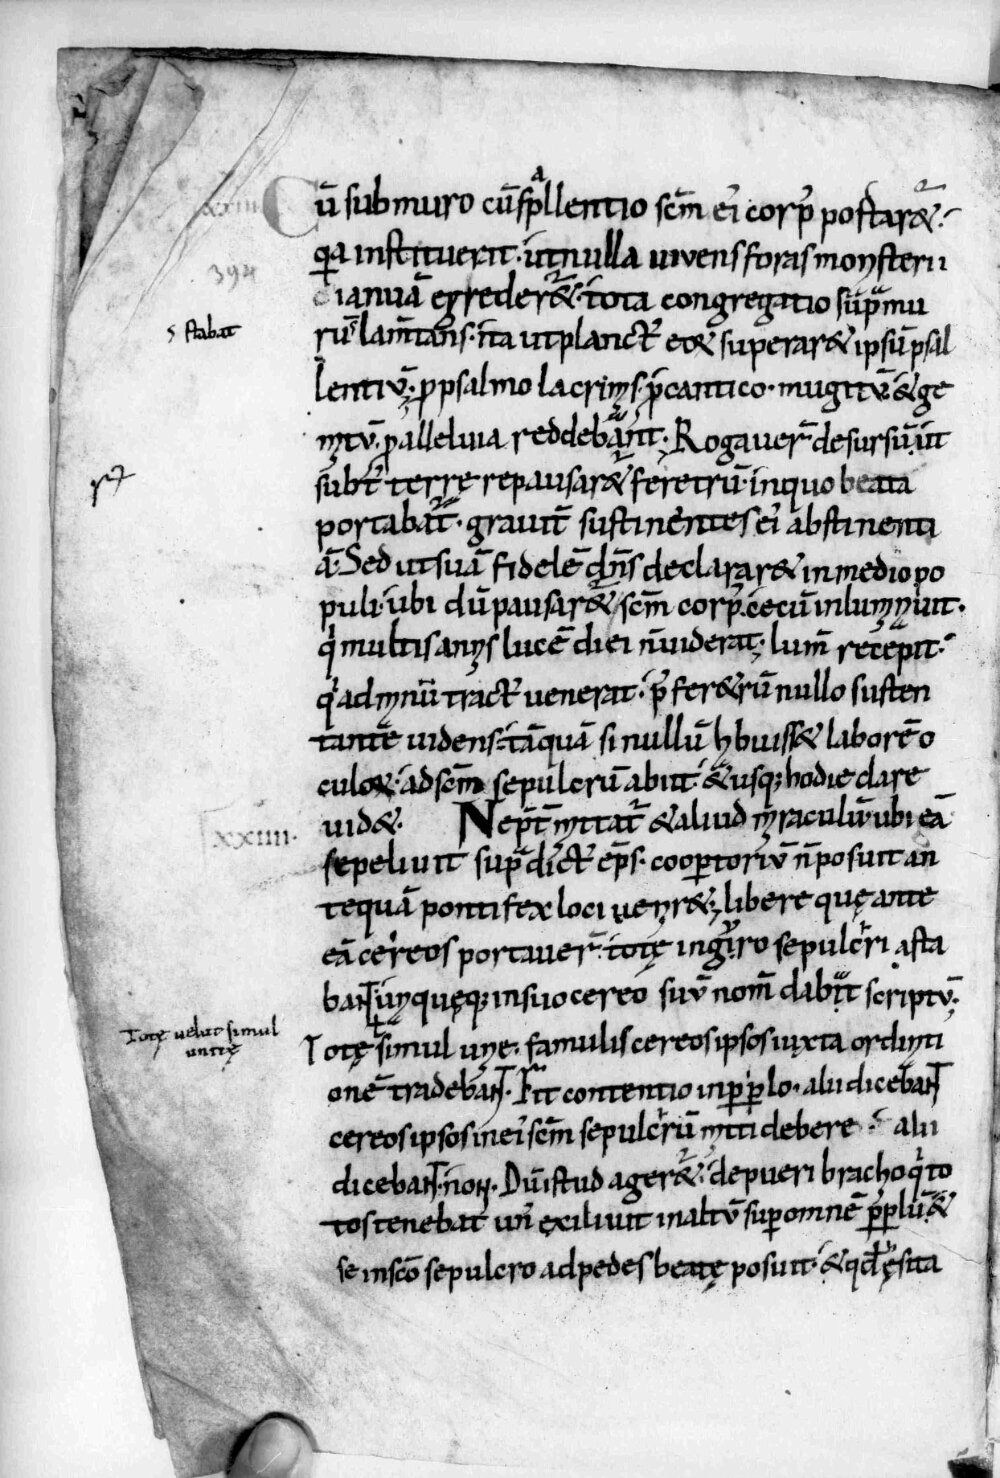 xxiiii
Cū sub muro cū spallentio scm̄ ei' corp' portar&̄.
394
qa instituerat. ut nulla vivens foras monasterii
ianuā egreder&̄. tota congregatio sup̄ mu
s stabat
rū lam̄tans. ita ut planct' eor& superar& ipsū psal
lentiū. p psalmo lacrimas. p cantico. mugitū & ge
mitū. p alleluia reddebant. Rogaver̄ desursū. ut
sub t̄ terrę repausar&̄ feretrū. in quo beata
portabat̄. gravit̄ sustinentes ei' abstinenti
ā. Sed ut suā fidelē dn̄s declarar& in medio po
puli. ubi dū pausar& scm̄ corp'. cecū inluminavit.
q multis annis lucē diei n̄ viderat. lum̄ recepit.
q ad manū tract' venerat. p' fer&rū nullo susten
tante videns. tāquā si nullū habuiss& laborē o
culor̄. ad scm̄ sepulcrū abiit. & usq; hodie clare
vid&.
xxiiii.
Nec p̄t̄mittat̄ & aliud miraculū. ubi eā
sepelivit supdict' ep̄s. coopertoriū n̄ posuit an
tequā pontifex loci venir&; libere quę ante
eā cereos portaver̄. totę in giro sepulcri asta
banT. unaquęq; in suo cereo suū nom̄ dabat scriptū.
Totę velut simul
unitę
Totę simul une. famulis cereos ipsos iuxta ordinati
onē tradebanT. Fit contentio in pplo. alii dicebanT
cereos ipsos in ei' scm̄ sepulcrū mitti debere. alii
dicebanT. non. Dū istud ager&̄. de pueri brachio q to
tos tenebat un' exilivit in altū sup omnē pplū. &
se in sco sepulcro ad pedes beatę posuit. & qđ quęsita